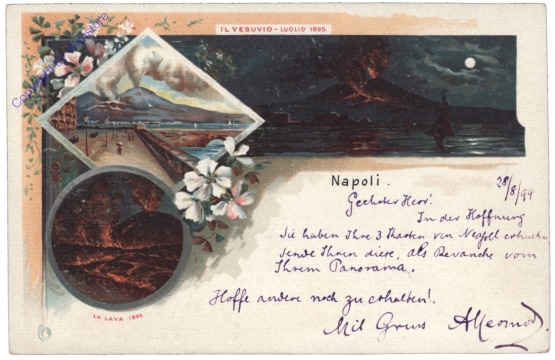 IL VESUVIO - LUGLIO 1895.
Napoli.
28/8/99
Geehrter Herr!
In der Hoffnung
Sie haben Ihre 3 Karten von erhalten
sende Ihnen diese, als Revanche vom
Ihrem Panorama.
Hoffe andere noch zu erhalten!.
Mit Gruss
LA LAVA 1895.